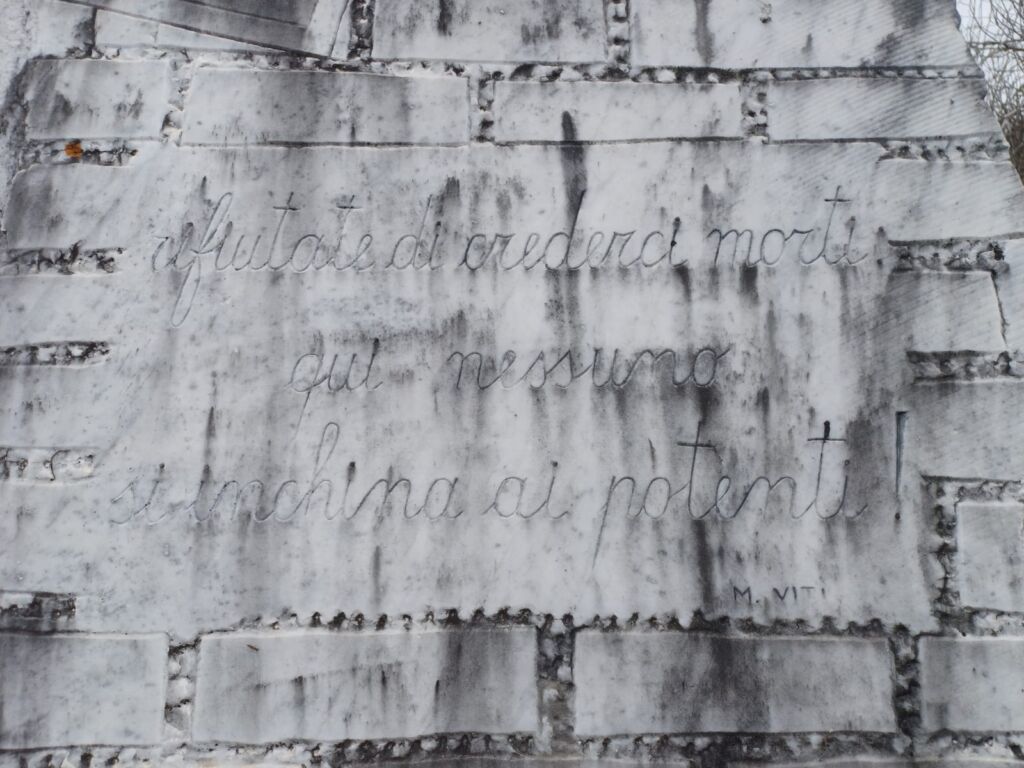 rifiutate di crederci morti
qui nessuno
si inchina ai potenti!
M. VITI